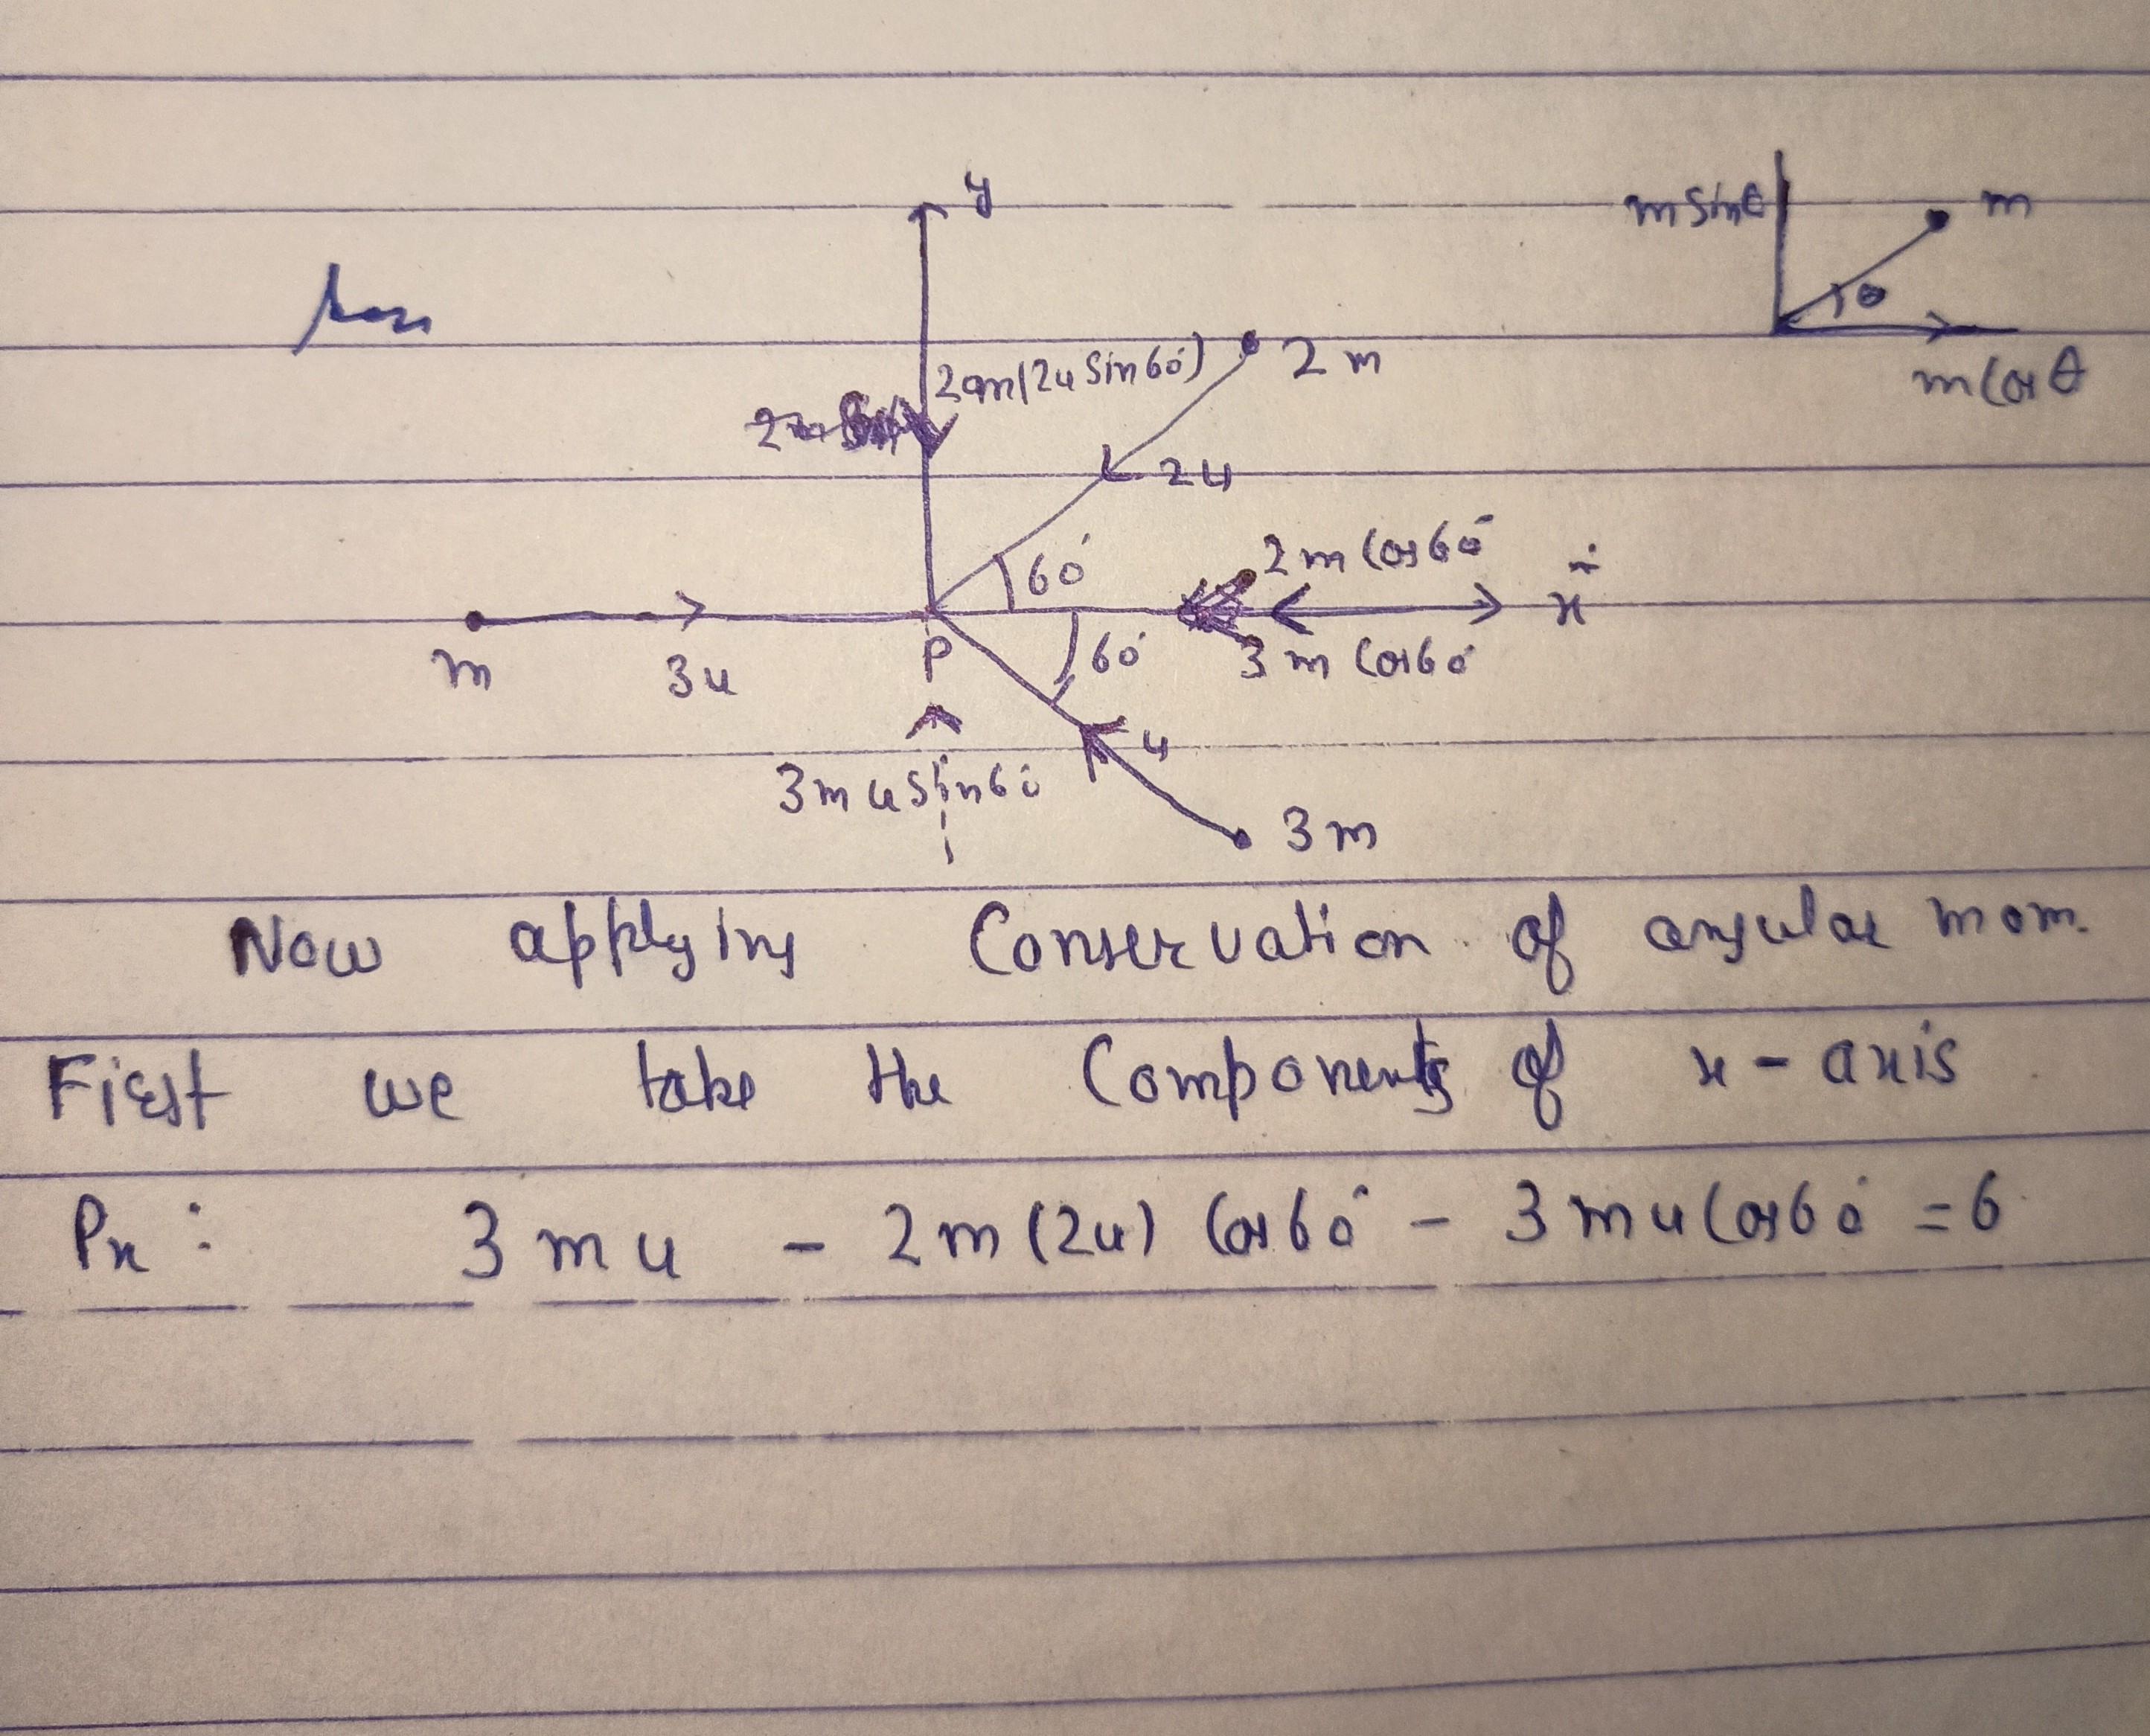 y
m sinθ
m
θ
m cosθ
2m(2u sin60°)
2m
2u
60°
2m cos60°
x
m
3u
P
60°
3m cos60°
u
3mu sin60°
3m
Now applying Conservation of angular mom.
First we take the Components of x-axis
Px : 3mu - 2m(2u) cos60° - 3mu cos60° = 6